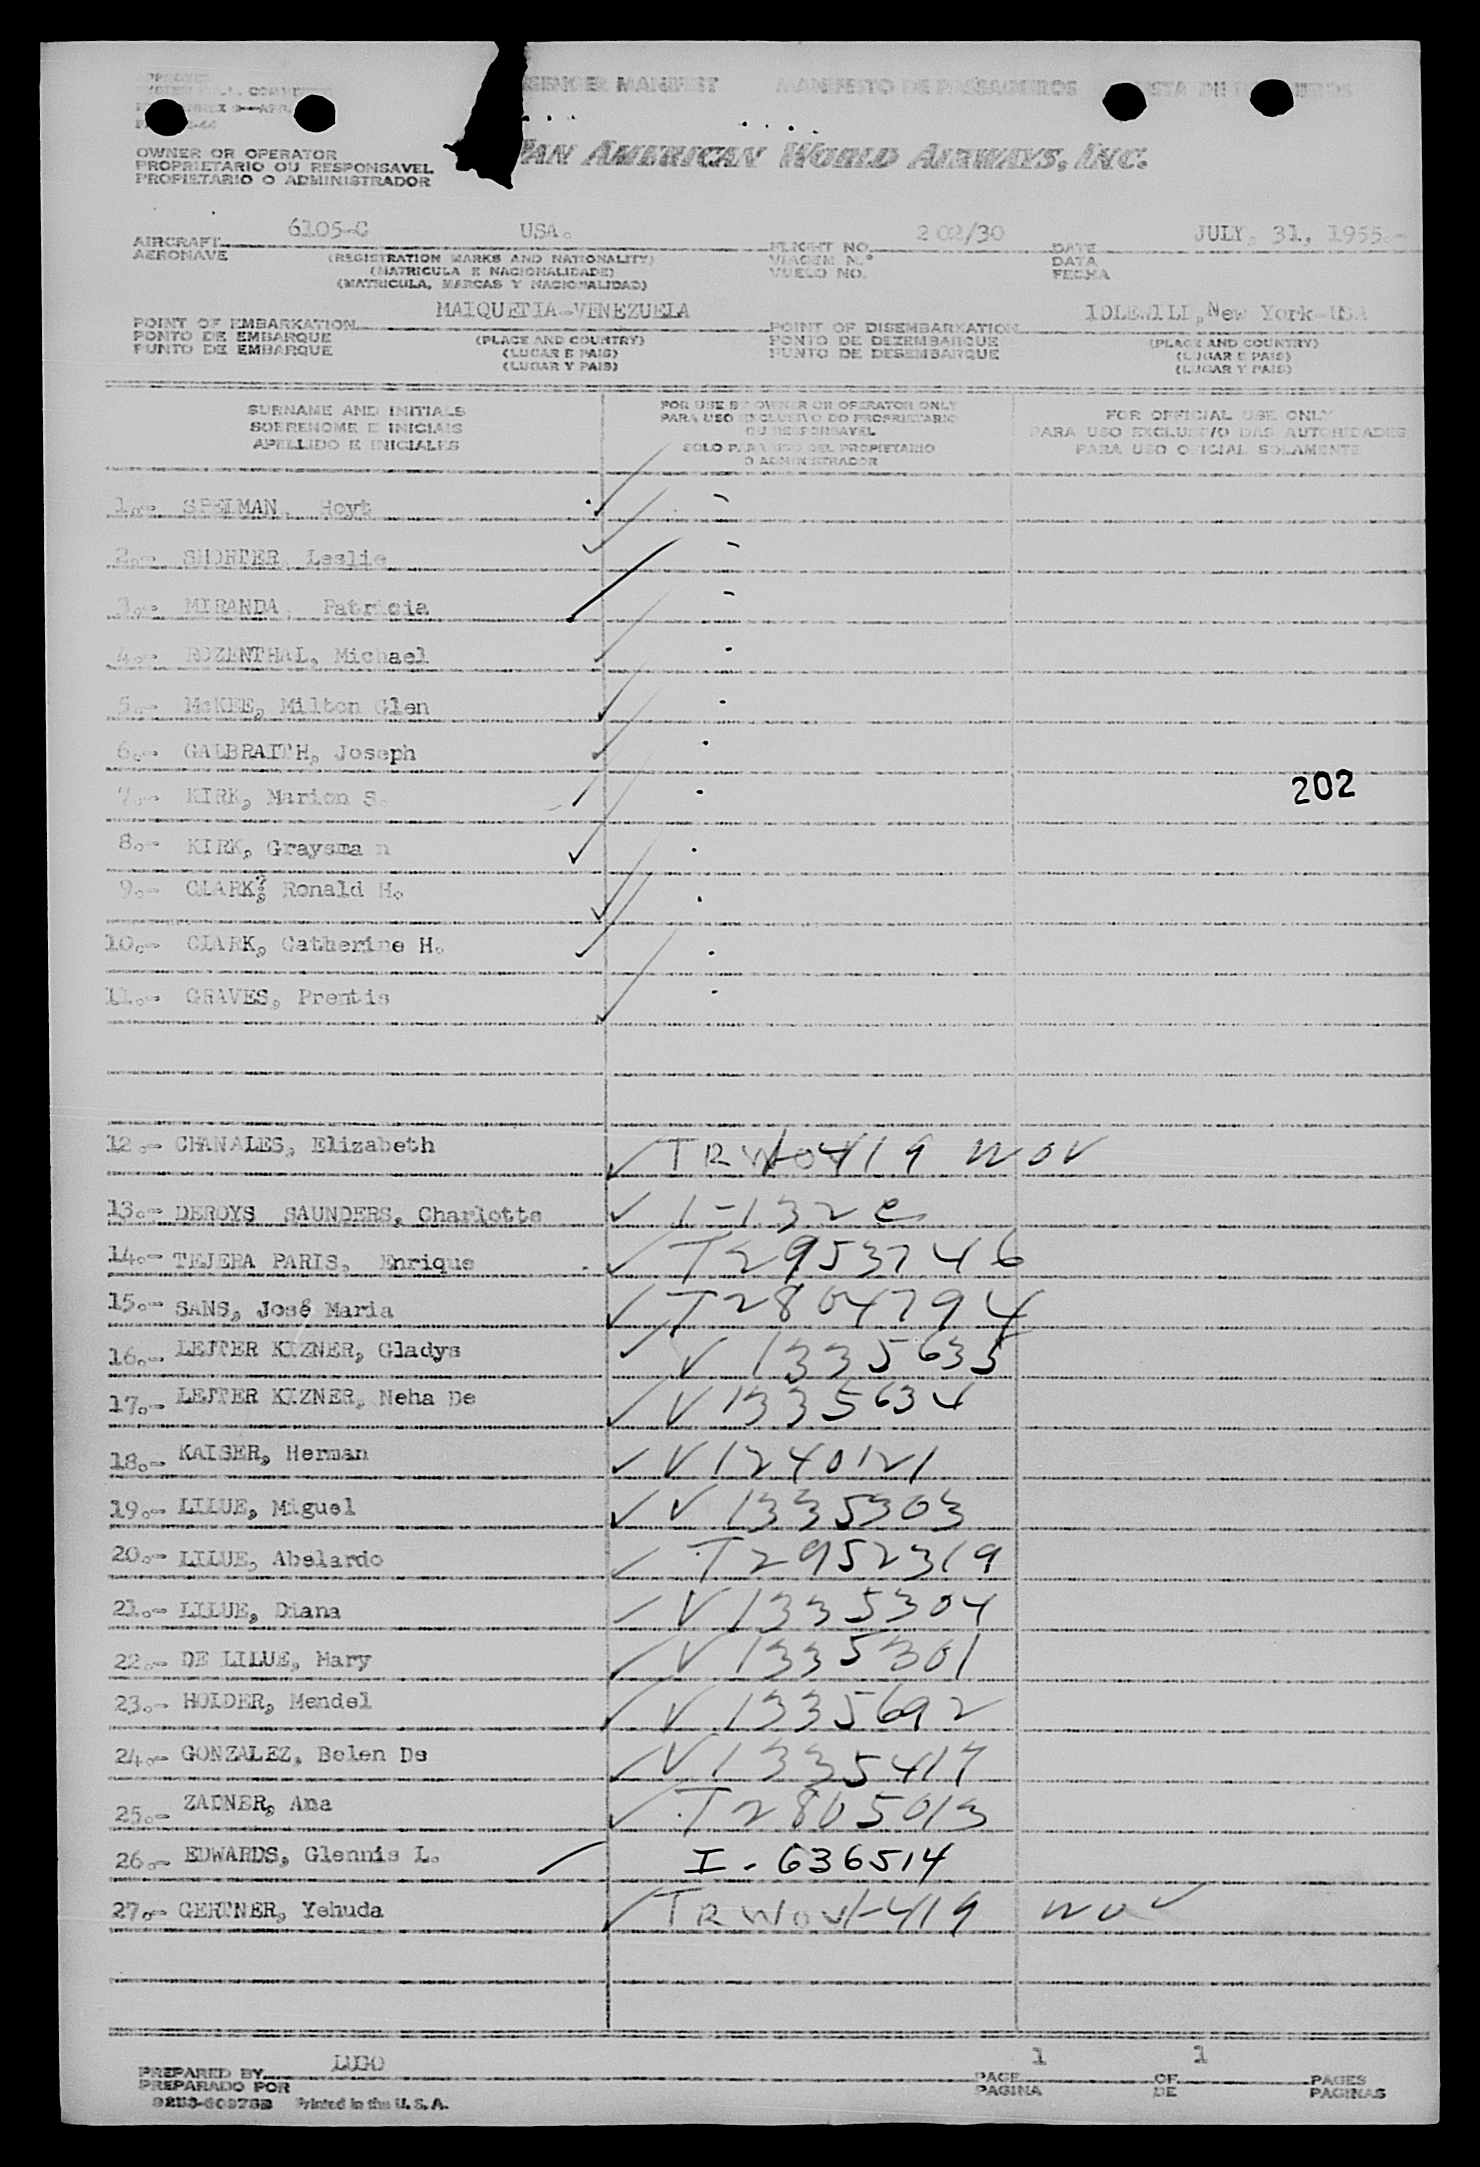 PASSENGER MANIFEST MANIFESTO DE PASSAGEIROS LISTA DE
OWNER OR OPERATOR
PROPRIETARIO OU RESPONSAVEL
PROPIETARIO O ADMINISTRADOR
PAN AMERICAN WORLD AIRWAYS, INC.
6105-C USA. 202/30 JULY, 31, 1955.-
AIRCRAFT FLIGHT NO. DATE
AERONAVE (REGISTRATION MARKS AND NATIONALITY) VIAGEM N.º DATA
(MATRICULA E NACIONALIDADE) VUELO NO. FECHA
(MATRICULA, MARCAS Y NACIONALIDAD)
MAIQUETIA-VENEZUELA IDLEWILD, New York-USA
POINT OF EMBARKATION POINT OF DISEMBARKATION
PONTO DE EMBARQUE (PLACE AND COUNTRY) PONTO DE DEZEMBARQUE (PLACE AND COUNTRY)
PUNTO DE EMBARQUE (LUGAR E PAIS) PUNTO DE DESEMBARQUE (LUGAR E PAIS)
(LUGAR Y PAIS) (LUGAR Y PAIS)
SURNAME AND INITIALS FOR USE BY OWNER OR OPERATOR ONLY FOR OFFICIAL USE ONLY
SOBRENOME E INICIAIS PARA USO EXCLUSIVO DO PROPRIETARIO PARA USO EXCLUSIVO DAS AUTORIDADES
OU RESPONSAVEL
APELLIDO E INICIALES SOLO PARA USO DEL PROPIETARIO PARA USO OFICIAL SOLAMENTE
O ADMINISTRADOR
1.- SPELMAN, Hoyt
2.- SHORTER, Leslie
3.- MIRANDA, Patricia
4.- ROZENTHAL, Michael
5.- McKEE, Milton Glen
6.- GALBRAITH, Joseph
7.- KIRK, Marion S. 202
8.- KIRK, Graysma n
9.- CLARK, Ronald H.
10.- CLARK, Catherine H.
11.- GRAVES, Prentis
12.- CHANALES, Elizabeth TRWOV 419 WOV
13.- DEROYS SAUNDERS, Charlotte 1-132 e
14.- TEJERA PARIS, Enrique T2953746
15.- SANS, José Maria T2804794
16.- LEJTER KIZNER, Gladys V1335635
17.- LEJTER KIZNER, Neha De V1335634
18.- KAISER, Herman V1240121
19.- LILUE, Miguel V1335303
20.- LILUE, Abelardo T2952319
21.- LILUE, Diana V1335304
22.- DE LILUE, Mary V1335301
23.- HOLDER, Mendel V1335692
24.- GONZALEZ, Belen De V1335417
25.- ZADNER, Ana T2805013
26.- EDWARDS, Glennis L. I-636514
27.- GERTNER, Yehuda TRWOV-419 WOV
LUGO 1 1
PREPARED BY PAGE OF PAGES
PREPARADO POR PAGINA DE PAGINAS
Printed in the U. S. A.